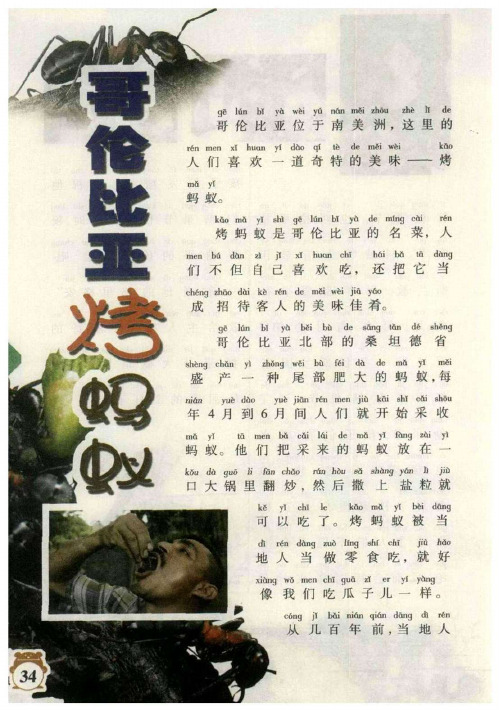 哥伦比亚烤蚂蚁
gē lún bǐ yà wèi yú nán měi zhōu zhè lǐ de
哥伦比亚位于南美洲，这里的
rén men xǐ huan yí dào qí tè de měi wèi kǎo
人们喜欢一道奇特的美味——烤
mǎ yǐ
蚂蚁。
kǎo mǎ yǐ shì gē lún bǐ yà de míng cài rén
烤蚂蚁是哥伦比亚的名菜，人
men bú dàn zì jǐ xǐ huan chī hái bǎ tā dàng
们不但自己喜欢吃，还把它当
chéng zhāo dài kè rén de měi wèi jiā yáo
成招待客人的美味佳肴。
gē lún bǐ yà běi bù de sāng tǎn dé shěng
哥伦比亚北部的桑坦德省
shèng chǎn yì zhǒng wěi bù féi dà de mǎ yǐ měi
盛产一种尾部肥大的蚂蚁，每
nián yuè dào yuè jiān rén men jiù kāi shǐ cǎi shōu
年4月到6月间人们就开始采收
mǎ yǐ tā men bǎ cǎi lái de mǎ yǐ fàng zài yì
蚂蚁。他们把采来的蚂蚁放在一
kǒu dà guō li fān chǎo rán hòu sǎ shàng yán lì jiù
口大锅里翻炒，然后撒上盐粒就
kě yǐ chī le kǎo mǎ yǐ bèi dāng
可以吃了。烤蚂蚁被当
dì rén dàng zuò líng shí chī jiù hǎo
地人当做零食吃，就好
xiàng wǒ men chī guā zǐ er yí yàng
像我们吃瓜子儿一样。
cóng jǐ bǎi nián qián dāng dì rén
从几百年前，当地人
34